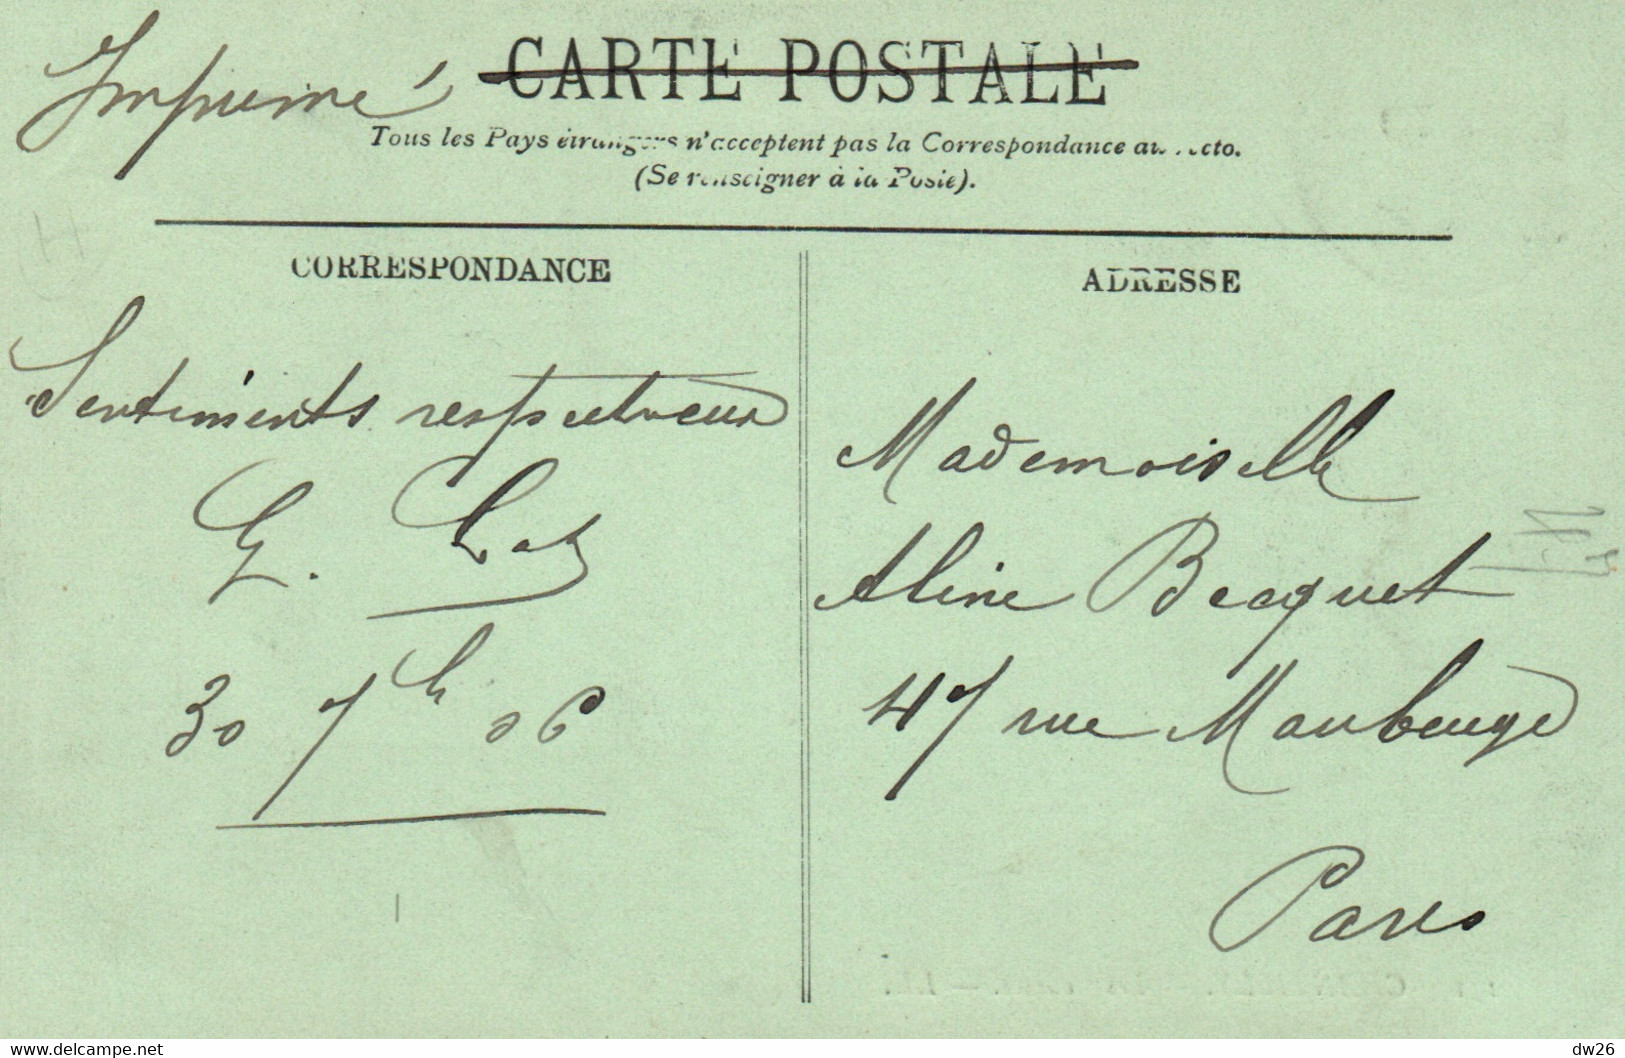 Imprimé
CARTE POSTALE
Tous les Pays étrangers n'acceptent pas la Correspondance au recto.
(Se renseigner à la Poste).
CORRESPONDANCE
Sentiments respectueux
G.
30 7bre 06
ADRESSE
Mademoiselle
Aline Becquet
47 rue Maubeuge
Paris
www.delcampe.net
dw26